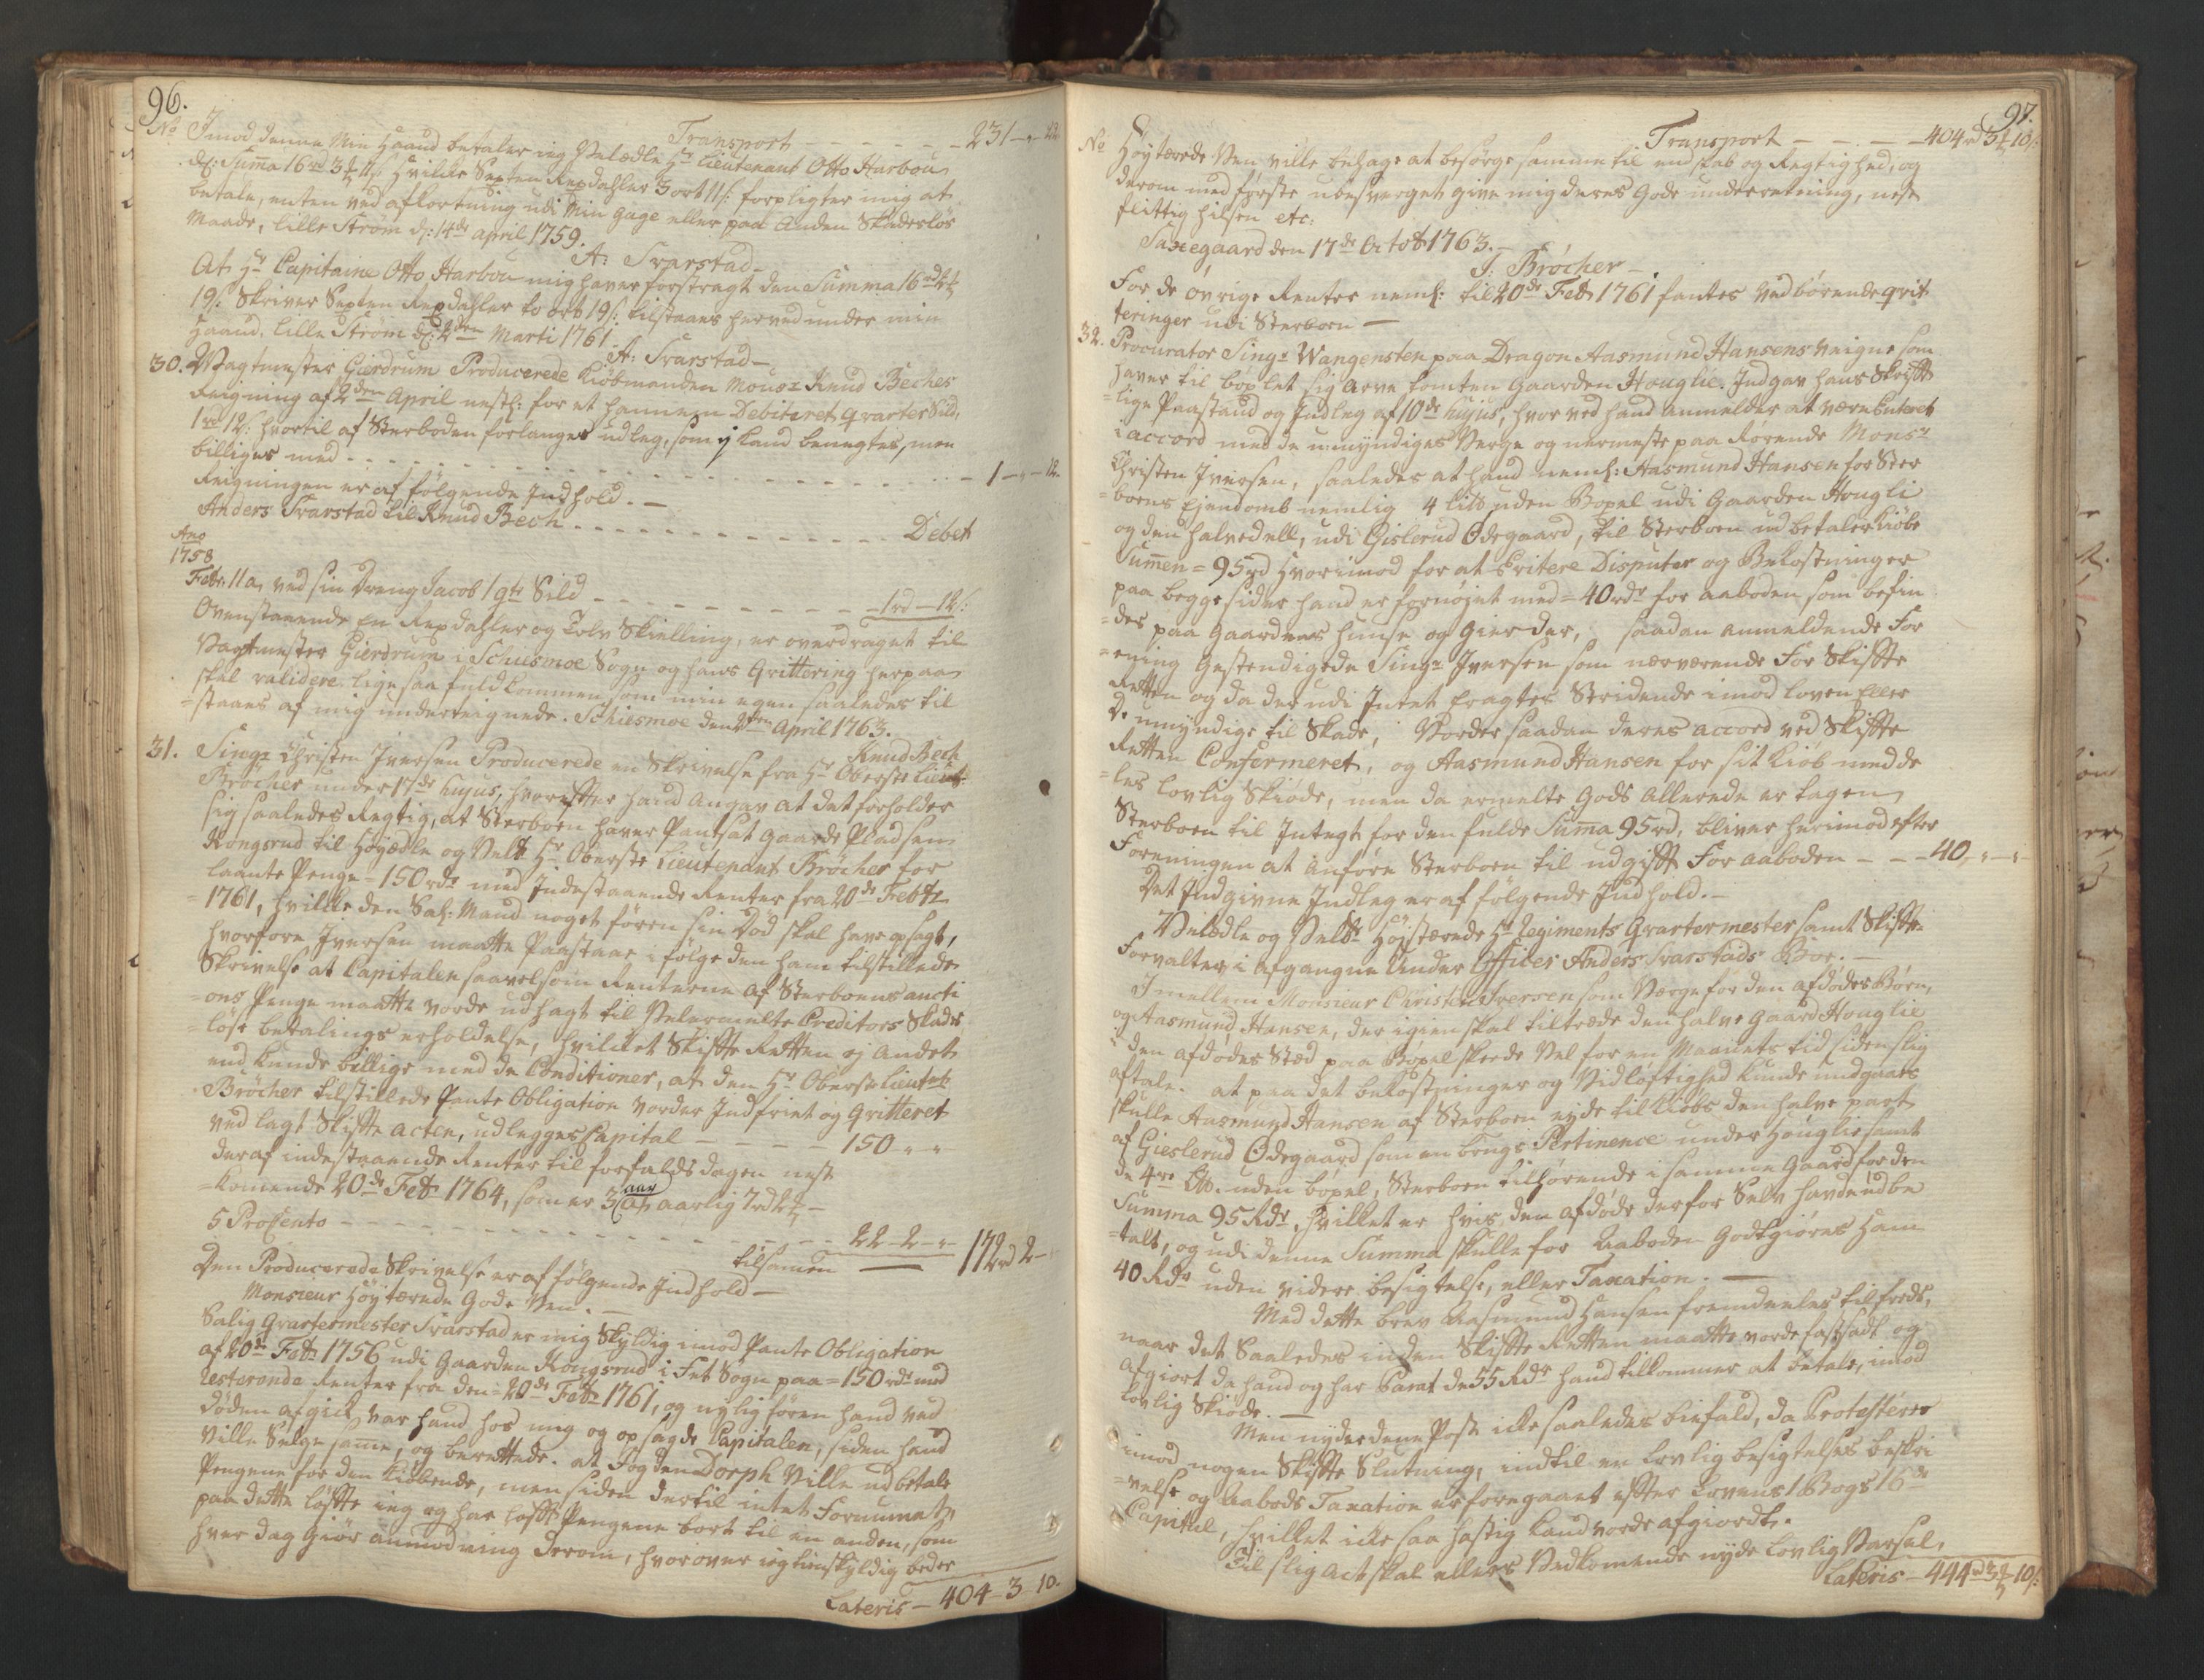 96.
No Transport - - - - - 231 - " - 22
Imod denne Min Haand betaler ieg Velædle Hr Lieutenant Otto Harbou
d: Suma 16 rd 3 ort 11 s: hvilke Sexten Rixdahler 3 ort 11 s: forpligter mig at
betale, enten ved afkortning udi Min gage eller paa Anden Skadesløs
Maade, Lille Strøm d: 14de april 1759.
A: Svarstad
At Hr Capitaine Otto Harbou mig haver forstragt den Summa 16 rd 2 ort
19 s: skriver Sexten Rixdahler to ort 19 s: tilstaaes herved under min
Haand. Lille Strøm d: 2den Marti 1761.
A: Svarstad
30. Vagtmester Gierdrum Producerede Kiöbmanden Monsr Knud Beches
Reigning af 2den April nestl: for et hannem Debiteret qvarter Sild,
1 rd 12 s: hvortil af Sterboden forlanges udlæg, som ej kand benegtes, men
billiges med - - - - - - - - - - - - - 1 - " - 12
Reigningen er af følgende Indhold.
Anders Svarstad til Knud Bech - - - - - - - Debet
Ano
1758
Febr: 11 a, ved sin Dreng Jacob 1 qtr Sild - - - - - - - 1 rd - 12 s:
Ovenstaaende En Rixdahler og Tolv Skielling, er overdraget til
Vagtmester Gierdrum i Schiesmoe Sogn og hans Qvittering herpaa
skal validere lige saa fuldkommen som min egen saaledes til
=staaes af mig underteignede. Schiesmoe den 2den April 1763.
Knud Bech
31. Singr Christen Iversen Producerede en Skrivelse fra Hr Oberste Lieut:
Bröcher under 17de hujus, hvorefter hand angav at det forholder
sig saaledes Rigtig, at Sterboen haver Pantsat Gaarde Pladsen
Kongsrud til Höyædle og Velb: Hr Oberste Lieutenant Bröcher for
laante Penge = 150 rdr med Indestaaende Renter fra 20de Febr
1761, hvilke den Sal: Mand noget fören sin Död skal have opsagt,
hvorfore Iversen maatte Paastaae i følge den ham tilstillede
Skrivelse at Capitalen saavelsom Renterne af Sterboens aucti
=ons Penge maatte vorde udlagt til Velermelte Creditors Skades
=löse betalings erholdelse, hvilket Skifte Retten ej andet
end kunde billige med de Conditioner, at den Hr Oberste Lieutnt
Bröcher tilstillede Pante Obligation vorder Indfriet og Qvitteret
ved lagt Skifte acten, udlegges Capital - - - - 150 " "
Deraf indestaaende Renter til forfalds dagen nest
=komende 20de Febr 1764, som er 3 aar aarlig 7 rd 2 ort
5 Procento - - - - - - - - - - 22 - 2 - "
tilsamen — 172 rd 2 -
Den Producerede Skrivelse er af følgende Indhold —
Monsieur Höytærede Gode Ven.
Salig Qvartermester Svarstad er mig Skyldig imod Pante Obligation
af 20de Febr 1756 udi Gaarden Kongsrud i Fet Sogn paa = 150 rdr med
resterende Renter fra den = 20de Febr 1761, og nylig fören hand ved
döden afgick var hand hos mig og opsagde Capitalen, siden hand
ville Selge samme, og berettede at Fogden Dorph ville udbetale
Pengene for den Kiöbende, men siden dertil intet Fornumet,
paa dette löfte ieg og har loft Pengene bort til en anden, som
hver dag giör anmodning derom, hvorover ieg tienskyldig beder
Lateris - 404 - 3 - 10.
97.
No Transport - - - - 404 rd 3 ort 10 s:
Höytærede Ven ville behage at besørge samme til endskab og Rigtighed, og
derom med første ubesverget give mig deres Gode underretning, nest
flittig hilsen etc:
Saxegaard den 17de Octob 1763.
J: Bröcher
For de övrige Renter neml: til 20de Febr 1761 fantes vedbørende qvit
teringer udi Sterboen —
32. Procurator Singr Wangensten paa Dragon Aasmund Hansens Veigne som
haver til böxlet sig arve tomten Gaarden Houglie. Indgav hans Skrift
=lige Paastand og Indlæg af 10de hujus, hvor ved hand anmelder at være Enteret
i accord med de umyndiges Verge og nermeste paa Rörende Monsr
Christen Iversen, saaledes at hand neml: Aasmund Hansen for Ster
=boens Ejendomb nemlig 4 Lis: uden Böxel udi Gaarden Hougli
og den halvedell, udi Gislerud Ödegaard, til Sterboen udbetaler Kiöbe
Sumen = 95 rd hvorimod for at Evitere Disputer og Bekostninger
paa begge sider hand er fornöjet med = 40 rdr for aaboden som befin
=des paa Gaardens huuse og gierder, saadan anmeldende For
=eening gestendigede Singr Iversen som nærværende for Skifte
Retten og da det udi Intet eragtes Stridende imod loven Eller
De umyndige til Skade, Vorder saadan deres accord ved Skifte
Retten Confermeret, og Aasmund Hansen for sit Kiöb medde
=les lovlig Skiöde, men da ermelte Gods allerede er tagen
Sterboen til Integt for den fulde Suma 95 rd, bliver herimod efter
Foreningen at anføre Sterboen til udgift For aaboden - - - 40 - " - "
Det Indgivne Indlæg er af følgende Indhold.
Velædle og Velbr Höistærede Hr Regiments Qvartermester samt Skifte
Forvalter i afgangne Under Officer Anders Svarstads Boe.
Imellem Monsieur Christen Iversen som Verge for den afdödes Börn,
og Aasmund Hansen, der igien skal tiltræde den halve Gaard Houglie
i den afdödes Stæd paa Böxel skeede Vel for en Maanets tid siden slig
aftale. at paa det bekostninger og Vidlöftighed kunde undgaaes
skulle Aasmund Hansen af Sterboen nyde til Kiöbs den halve part
af Gieslerud Ödegaard som en brugs Pertinence under Houglie samt
de 4re Lis. uden böxel, Sterboen tilhørende i samme Gaard for den
Summa 95 Rdr, hvilket er hvis den afdöde derfor Selv havde udbe
=talt, og udi denne Summa skulle for Aaboden Godtgiöres Ham
40 Rdr uden videre besigtelse, eller Taxation.
Med dette blev Aasmund Hansen fremdeeles tilfreds,
naar det Saaledes inden Skifte Retten maatte vorde fastsadt og
afgiort da hand og har Parat de 55 Rdr hand tilkommer at betale, imod
lovlig Skiöde.
Men nyder denne Post icke saaledes biefald, da Protesteres
imod nogen Skifte Slutning, indtil en lovlig besigtelses beskri
=velse og Aabods Taxation er foregaaet efter Lovens 1 Bogs 16de
Capitul, hvilket icke saa hastig kand vorde afgiordt.
Til slig act skal ellers Vedkomende nyde lovlig Varsel,
Lateris - 444 rd 3 ort 10 s: